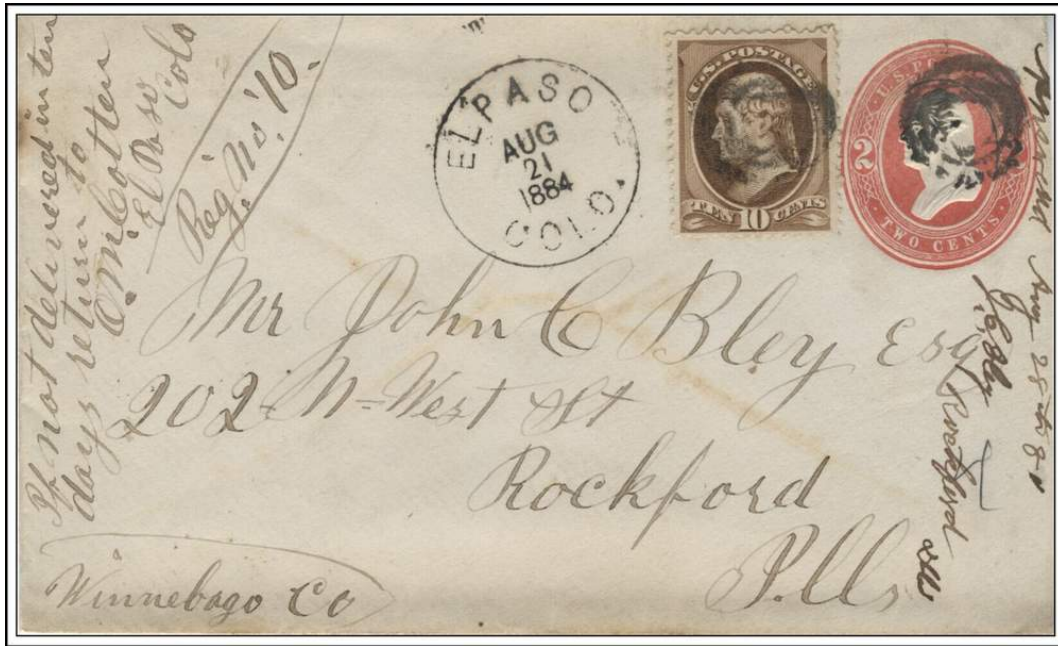 If not delivered in ten
days return to
O.M. Cotten
El Paso
Colo
Reg. No. 10.
EL PASO
AUG
21
1884
COLO.
U.S. POSTAGE
TEN 10 CENTS
U.S. PO
2
TWO CENTS
Mr John C Bley Esq
202 N-West St
Rockford
Ills
Winnebago Co
Aug 28th 8
J.C. Bley
Rockford
Ills